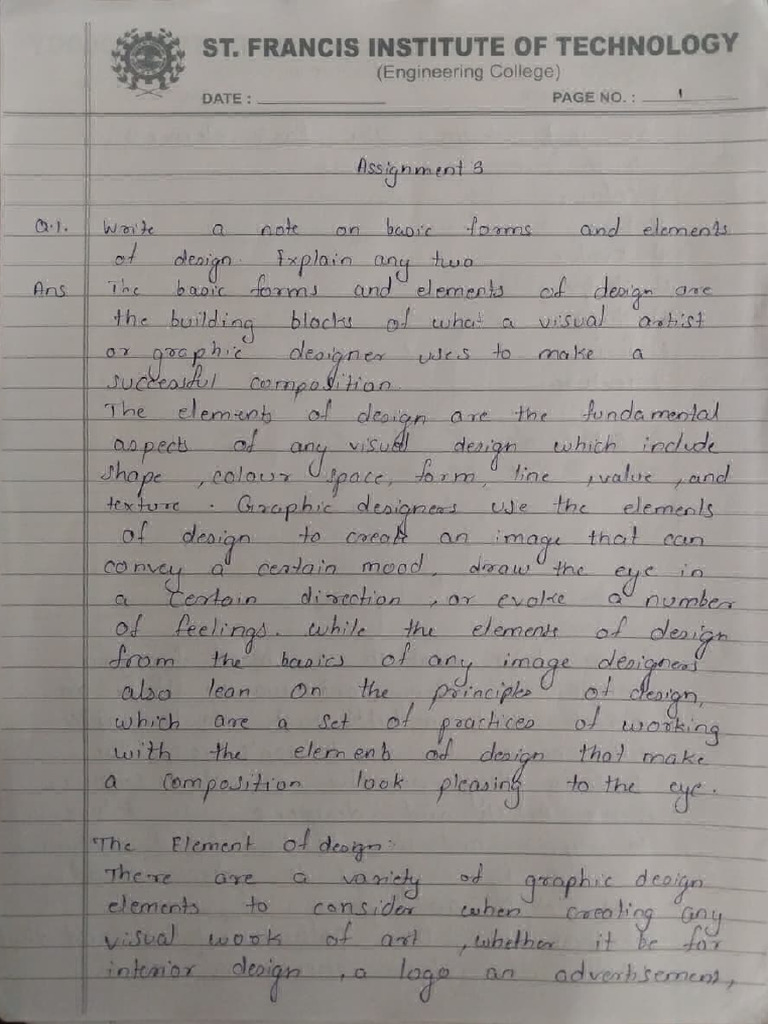 ST. FRANCIS INSTITUTE OF TECHNOLOGY
(Engineering College)
DATE : PAGE NO. : 1
Assignment 3
Q.1. Write a note on basic forms and elements
of design. Explain any two
Ans The basic forms and elements of design are
the building blocks of what a visual artist
or graphic designer uses to make a
successful composition.
The elements of design are the fundamental
aspects of any visual design which include
shape , colour space, form, line , value , and
texture . Graphic designers use the elements
of design to create an image that can
convey a certain mood, draw the eye in
a certain direction , or evoke a number
of feelings. while the elements of design
from the basics of any image designers
also lean on the principles of design,
which are a set of practices of working
with the elements of design that make
a composition look pleasing to the eye.
The Element of design:
There are a variety of graphic design
elements to consider when creating any
visual wook of art , whether it be for
interior design , a logo an advertisement,